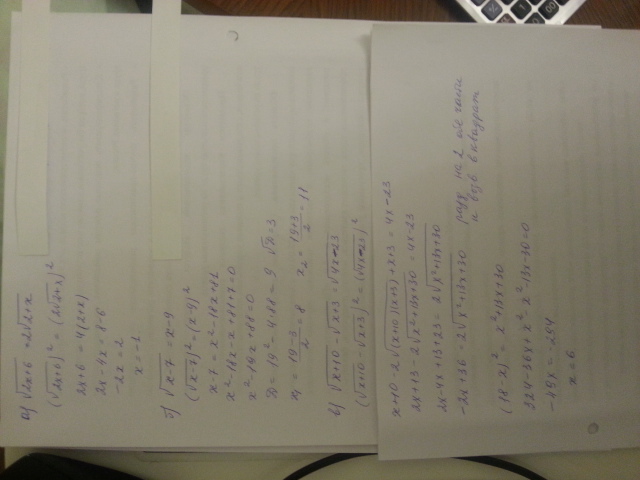 а) √2x+6 = 2√2+x
(√2x+6)² = (2√2+x)²
2x+6 = 4(2+x)
2x-4x = 8-6
-2x = 2
x = -1
б) √x-7 = x-9
(√x-7)² = (x-9)²
x-7 = x²-18x+81
x²-18x-x+81+7=0
x²-19x+88=0
D = 19²-4·88 = 9 √D=3
x₁ = (19-3)/2 = 8 x₂ = (19+3)/2 = 11
в) √x+10 - √x+3 = √4x-23
(√x+10 - √x+3)² = (√4x-23)²
x+10-2√(x+10)(x+3) +x+3 = 4x-23
2x+13-2√x²+13x+30 = 4x-23
2x-4x+13+23 = 2√x²+13x+30
-2x+36 = 2√x²+13x+30 разд на 2 обе части
и возв в квадрат
(18-x)² = x²+13x+30
324-36x+x²-x²-13x-30=0
-49x = -294
x = 6